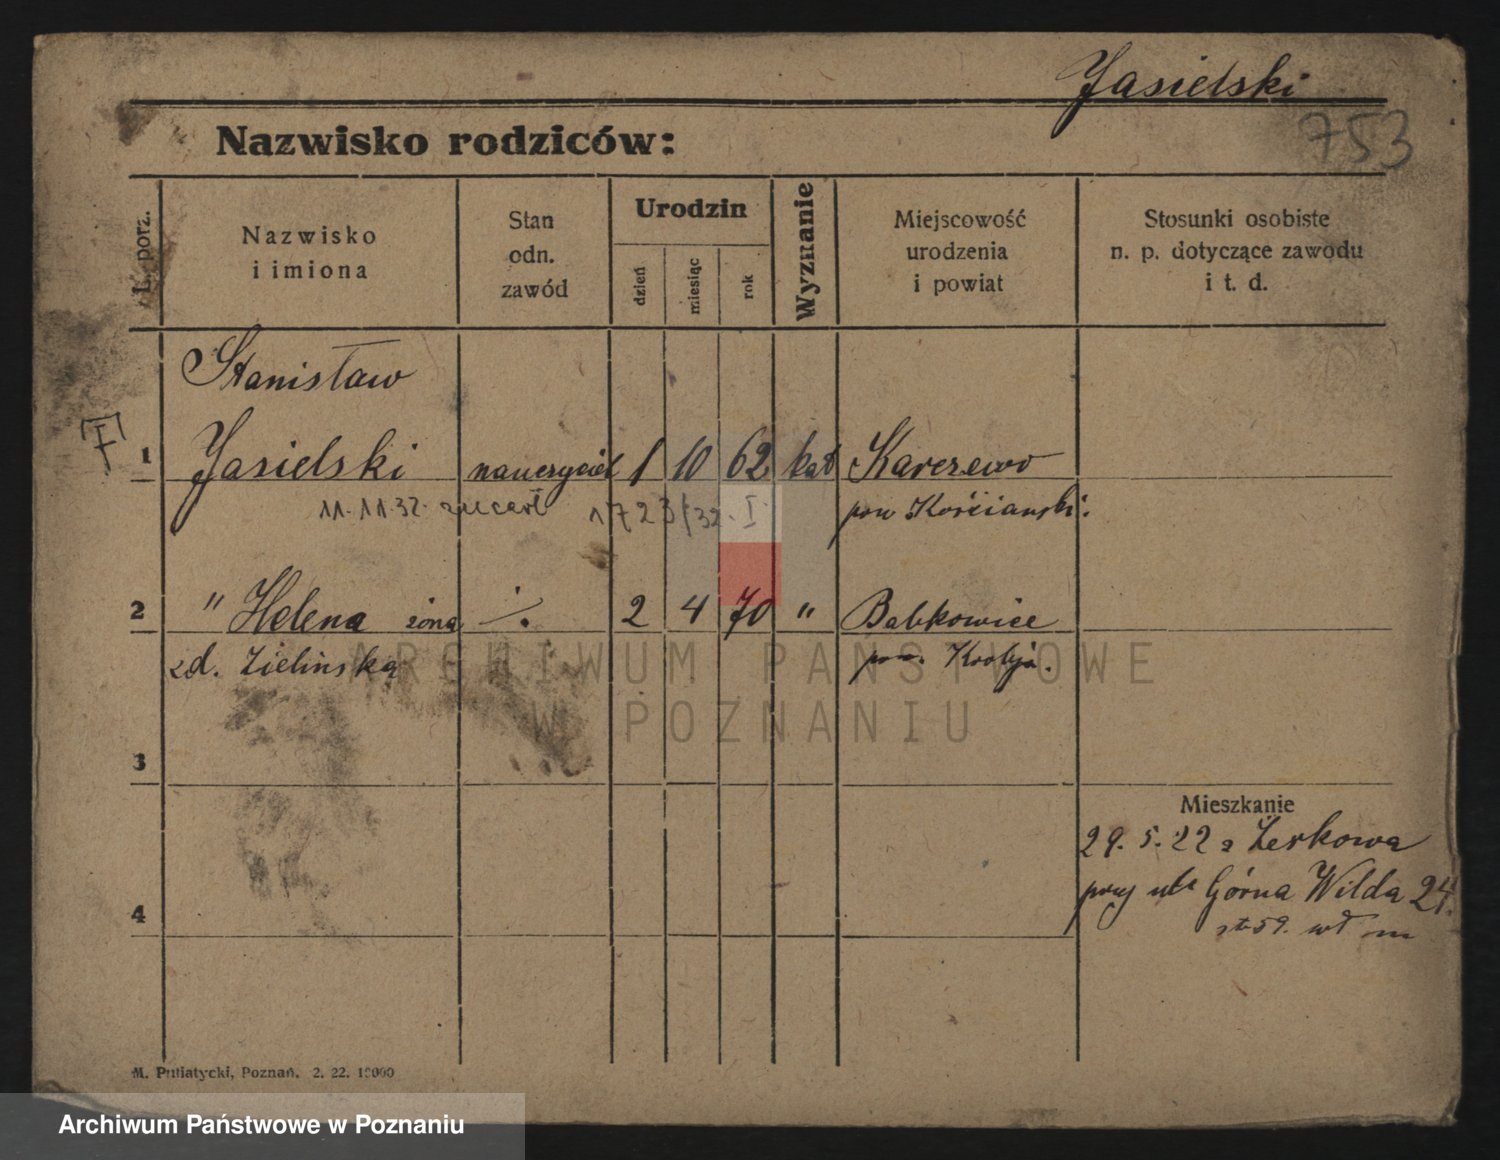 Jasielski
753
Nazwisko rodziców:
L. porz.
Nazwisko
i imiona
Stan
odn.
zawód
Urodzin
dzień
miesiąc
rok
Wyznanie
Miejscowość
urodzenia
i powiat
Stosunki osobiste
n. p. dotyczące zawodu
i t. d.
Stanisław
1 Jasielski nauczyciel 1 10 62 kat Karczewo
11.11.32. zmarł 1723/32. I. pow Kościański.
2 " Helena żona ·/. 2 4 70 " Babkowice
zd. Zielińska pow. Krobja.
3
Mieszkanie
29. 5. 22 z Żerkowa
przy ul. Górna Wilda 24.
4
59. wł m
M. Putiatycki, Poznań. 2. 22. 10000
ARCHIWUM PAŃSTWOWE
W POZNANIU
Archiwum Państwowe w Poznaniu